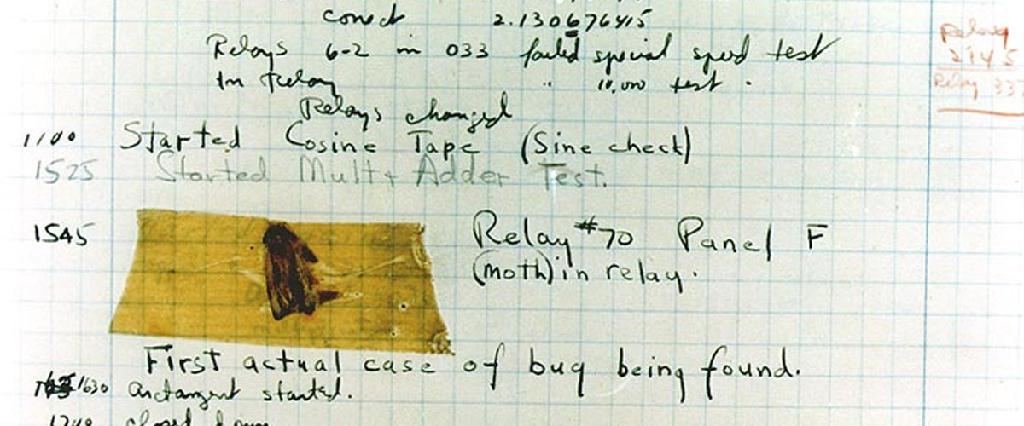 correct 2.130676415
Relays 6-2 in 033 failed special speed test
In Relay " 10,000 test.
Relays changed
1100 Started Cosine Tape (Sine check)
1525 Started Mult + Adder Test.
1545 Relay #70 Panel F
(moth) in relay.
First actual case of bug being found.
1630 arctangent started.
closed down
Relay
2145
Relay 337